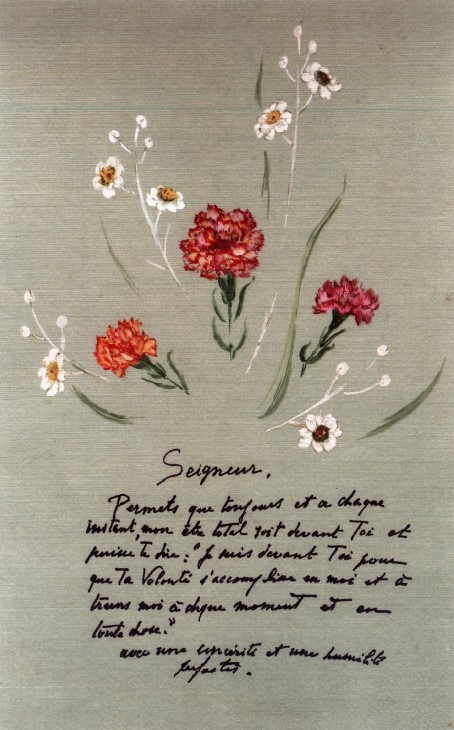 Seigneur,
Permets que toujours et a chaque
instant, mon être total soit devant Toi et
puisse te dire : "Je suis devant Toi pour
que Ta Volonté s'accomplisse en moi et à
travers moi à chque moment et en
toute chose."
avec une sincérité et une humilité